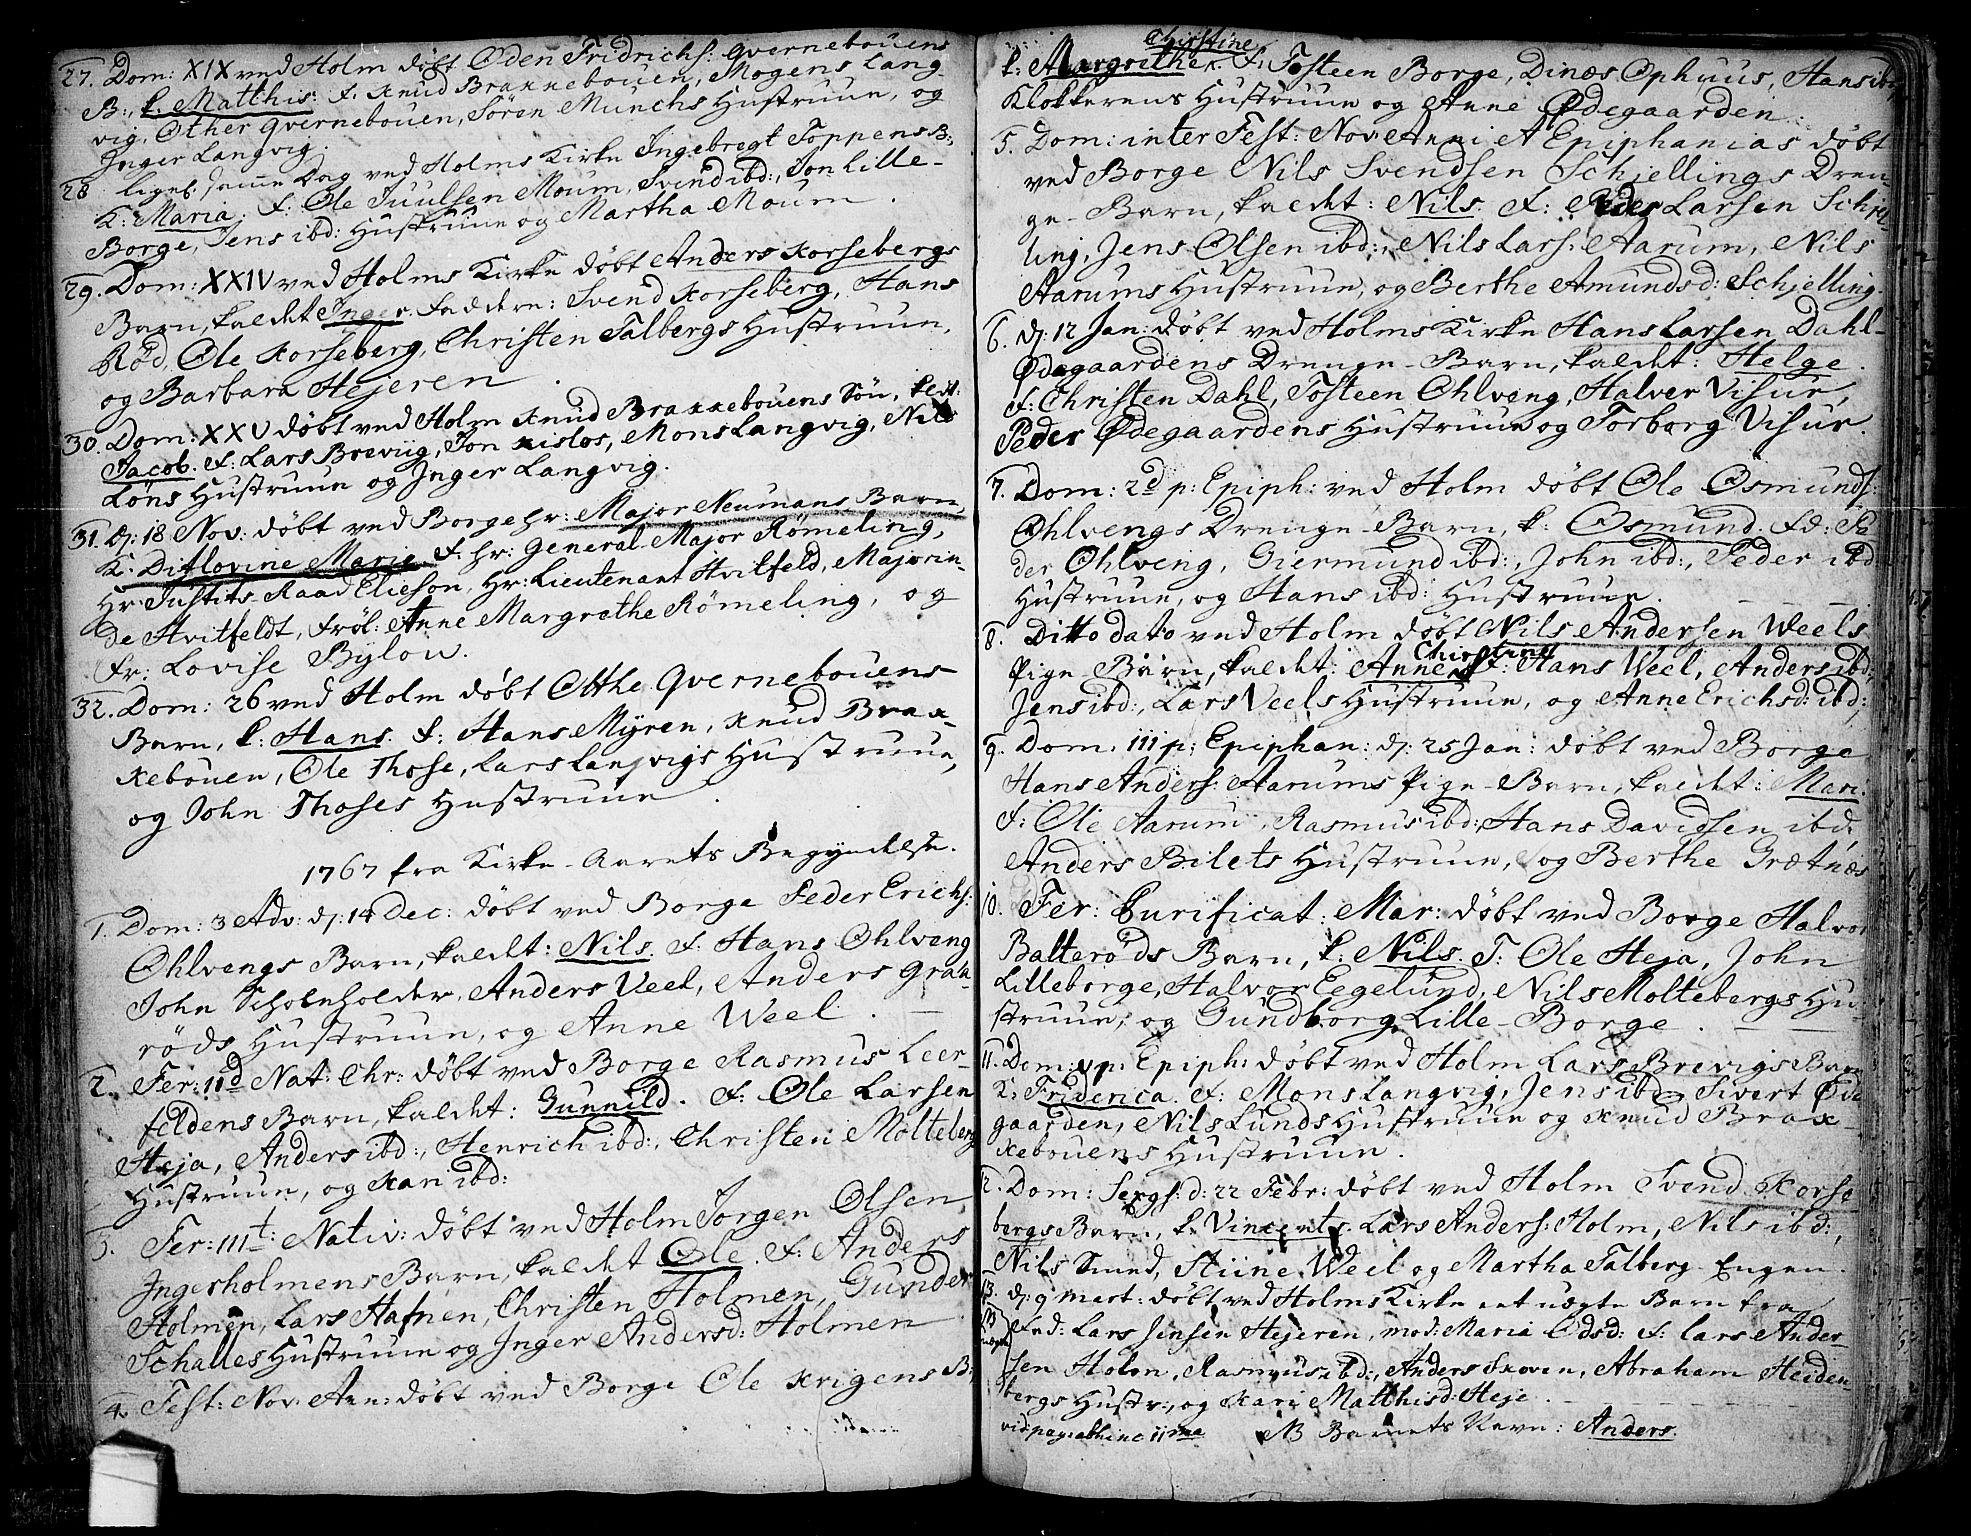 27. Dom: XIX ved Holm døbt Oden Fridrichs: Qvernebouens
B:, k. Matthis. f. Knud Braxxebouen, Mogens Lang-
vig, Other Qvernebouen, Søren Munchs Hustruue, og
Inger Langvig.
28. ligel. samme Dag ved Holms Kirke Ingebregt Toppens B:
K: Maria. f: Ole Juulsen Moum, Svend ibd:, Jon Lille-
Borge, Jens ibd: Hustruue og Martha Moum.
29. Dom: XXIV ved Holms Kirke døbt Anders Korsebergs
Barn, kaldet Inger. Faddere: Svend Korseberg, Hans
Rød, Ole Korseberg, Christen Talbergs Hustruue,
og Barbara Hejeren.
30. Dom: XXV døbt ved Holm Knud Braxxebouens Søn, kldt:
Jacob. f: Lars Breviig, Jon Kislos, Mons Langvig, Nils
Løns Hustruue og Inger Langvig.
31. D: 18 Nov: døbt ved Borge Hr: Major Neumans Barn,
K: Ditlovine Marie f: Hr: General-Major Rømeling,
Hr: Justits-Raad Elieson, Hr: Lieutenant Hvitfeld, Majorin-
de Hvitfeldt, Frøl: Anne Margrethe Rømeling, og
Fr: Lovise Bylow.
32. Dom: 26 ved Holm døbt Otthe Qvernebouens
Barn, k: Hans. f: Hans Myren, Knud Brax-
xebouen, Ole Those, Lars Langvigs Hustruue,
og John Thoses Hustruue.
1767 fra Kirke-Aarets Begyndelse.
1. Dom: 3 Adv: d: 14 Dec: døbt ved Borge Peder Erichs:
Ohlvengs Barn, kaldet: Nils. f. Hans Ohlveng
John Scholeholder, Anders Veel, Anders Graa-
røds Hustruue, og Anne Weel.
2. Fer: IId Nat: Chr: døbt ved Borge Rasmus Leer-
foldens Barn, kaldet: Gunnild. f: Ole Larsen
Heja, Anders ibd:, Henrich ibd:, Christen Molteberg
Hustruue, og Kari ibd:
3. Fer: IIIt: Nativ: døbt ved Holm Jørgen Olsen
Ingersholmens Barn, kaldet Ole. f: Anders
Holmen, Lars Hafnen, Christen Holmen, Gunder
Schalles Hustruue og Inger Andersd: Holmen
4. Fest: Nov. Ann: døbt ved Borge Ole Krigens B:
Christine
k: Margrethe. f: Tosteen Borge, Dines Ophuus, Hans ibd
Klokkerens Hustruue og Anne Ødegaarden.
5. Dom: inter Fest: Nov: Anni et Epiphanias døbt
ved Borge Nils Svendsen Schjellings Dren-
ge-Barn, kaldet: Nils. f: Peder Larsen Schjel-
ling, Jens Olsen ibd:, Nils Lars: Aarum, Nils
Aarums Hustruue, og Berthe Amundsd: Schjelling.
6. D: 12 Jan: døbt ved Holms Kirke Hans Larsen Dahl-
Ødegaardens Drenge-Barn, kaldet: Helge.
f: Christen Dahl, Tosteen Ohlveng, Halver Visur,
Peder Ødegaardens Hustruue og Torborg Visur.
7. Dom: 2d p: Epiph: ved Holm døbt Ole Osmunds:
Ohlvengs Drenge-Barn, k: Osmund. Fd: Pe-
der Ohlveng, Giermund ibd:, John ibd:, Peder ibd:
Hustruue, og Hans ibd: Hustruue.
8. Ditto dato ved Holm døbt Nils Andersen Weels
Christine
Pige-Barn, kaldet: Anne f: Hans Weel, Anders ibd:,
Jens ibd:, Lars Veels Hustruue, og Anne Erichsd: ibd:,
9. Dom. III p: Epiphan: d: 25 Jan: døbt ved Borge
Hans Anders: Aarums Pige-Barn, kaldet: Mari.
f: Ole Aarum, Rasmus ibd:, Hans Davidsen ibd.
Anders Bilets Hustruue, og Berthe Grætnæs
10. Fer: Purificat: Mar: døbt ved Borge Halvor
Balterøds Barn, k. Nils. F: Ole Heja, John
Lilleborge, Halvor Eegelund, Nils Moltebergs Hu-
struue, og Gundborg Lille-Borge.
11. Dom: V p: Epiph: døbt ved Holm Lars Brevigs Barn
K: Friderica. f: Mons Langvig, Jens ibd: Sivert Øde
gaarden, Nils Lunds Hustruue og Knud Brax-
xebouens Hustruue.
12. Dom: Sexgs: d: 22 Febr: døbt ved Holm Svend Korse-
bergs Barn, k. Vincents. Lars Anders: Holm, Nils ibd:,
Nils Smed, Stiine Weel og Martha Talberg-Engen.
13. d: 9 Mart: døbt ved Holms Kirke eet uægte Barn fra
NB uægte Fad: Lars Jensen Hejeren, Mod: Maria Odsd: f: Lars Ander-
sen Holm, Rasmus ibd:, Anders Skoven, Abraham Heiden-
bergs Hustr:, og Kari Matthisd: Heje.
vid pag: abhinc 11ma NB Barnets Navn: Anders.